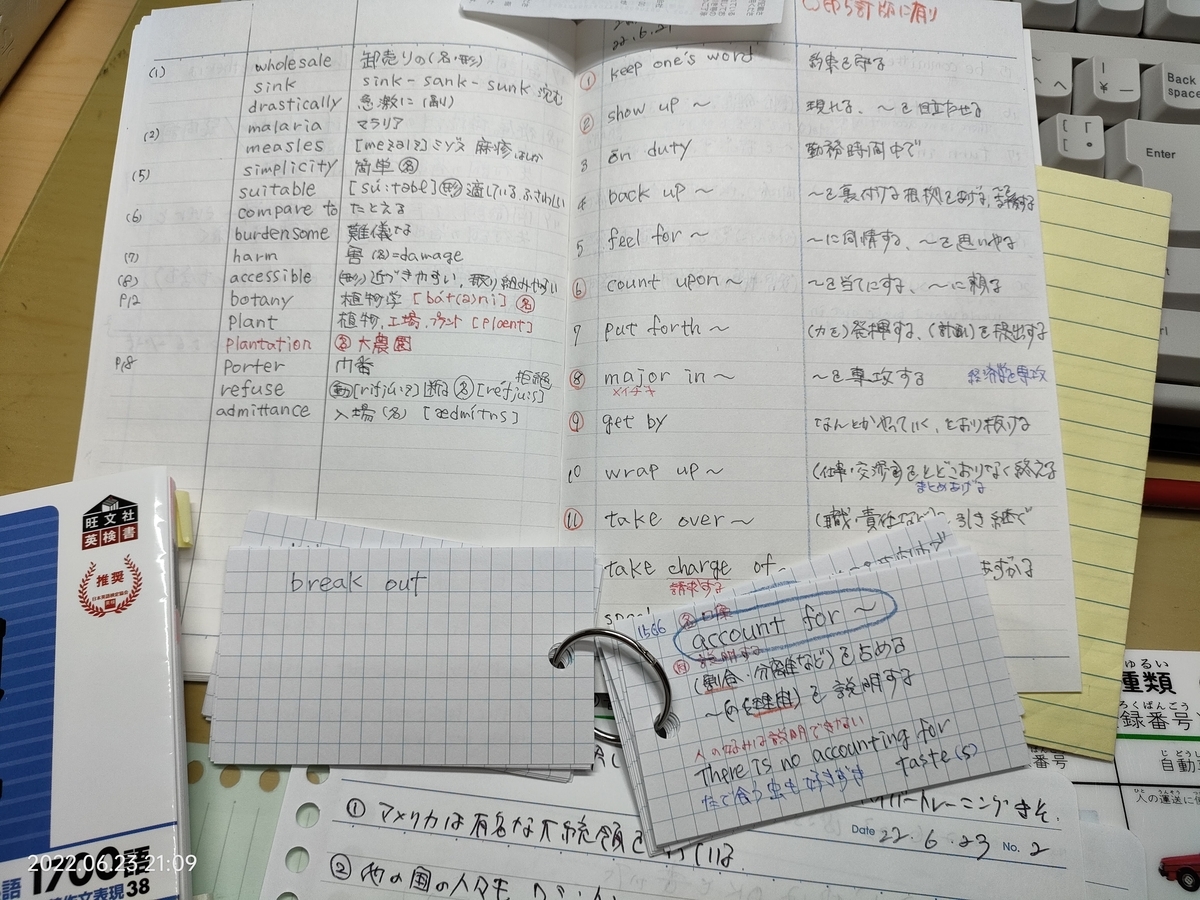 (1) wholesale 卸売りの(名・形)
sink sink - sank - sunk 沈む
drastically 急激に (副)
(2) malaria マラリア
measles 麻疹 はしか
(5) simplicity 簡単 名
suitable 形 適している ふさわしい
(6) compare to たとえる
burdensome 難儀な
(7) harm 害 (名)=damage
(8) accessible (形) 近づきやすい, 取り組みやすい
P12 botany 植物学 名
plant 植物, 工場, プラント
plantation 名 大農園
P18 porter 巾番
refuse 動 断る 名 拒絶
admittance 入場 (名)
22.6.21
① keep one's word 約束を守る
② show up ~ 現れる、~を目立たせる
3 on duty 勤務時間中で
4 back up ~ ~を裏付ける根拠をあげる,
5 feel for ~ ~に同情する、~を思いやる
⑥ count upon ~ ~を当てにする、~に頼る
7 put forth ~ (力を)発揮する、(計画)を提出する
⑧ major in ~ ~を専攻する 経済学を専攻
⑨ get by なんとかやっていく、とおり抜ける
10 wrap up ~ (仕事・交渉を)をとどこおりなく終える
まとめあげる
⑪ take over ~ (職・責任など) 引き継ぐ
take charge of
請求する
break out
1566
account for ~
説明する
(割合・分離など)を占める
~の(理由)を説明する
人の好みは説明できない
There is no accounting for
taste(s)
たで食う虫も好きずき
① アメリカは有名な大統領を
Date 22.6.23 No. 2
② 他の国の人々も
旺文社
英検書
推奨
1700語
作文表現38
Back space
Enter
種類
録番号
自動
人の運送に
2022.06.23 21:09